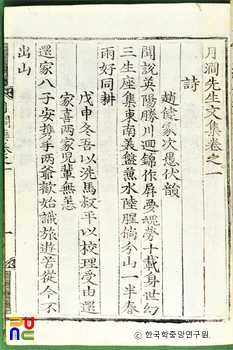 月澗先生文集卷之一
詩
趙健家次愚伏韻
聞說英陽勝川迴錦作屛夢魂勞十載身世幻
三生座集東南義盤兼水陸腥倘分山一半春
雨好同耕
戊申冬吾以洗馬叔平以校理受由還
家喜兩家兒輩無恙
還家八子安携手兩爺歡始識旅遊苦從今不
出山
ⓒ 한국학중앙연구원